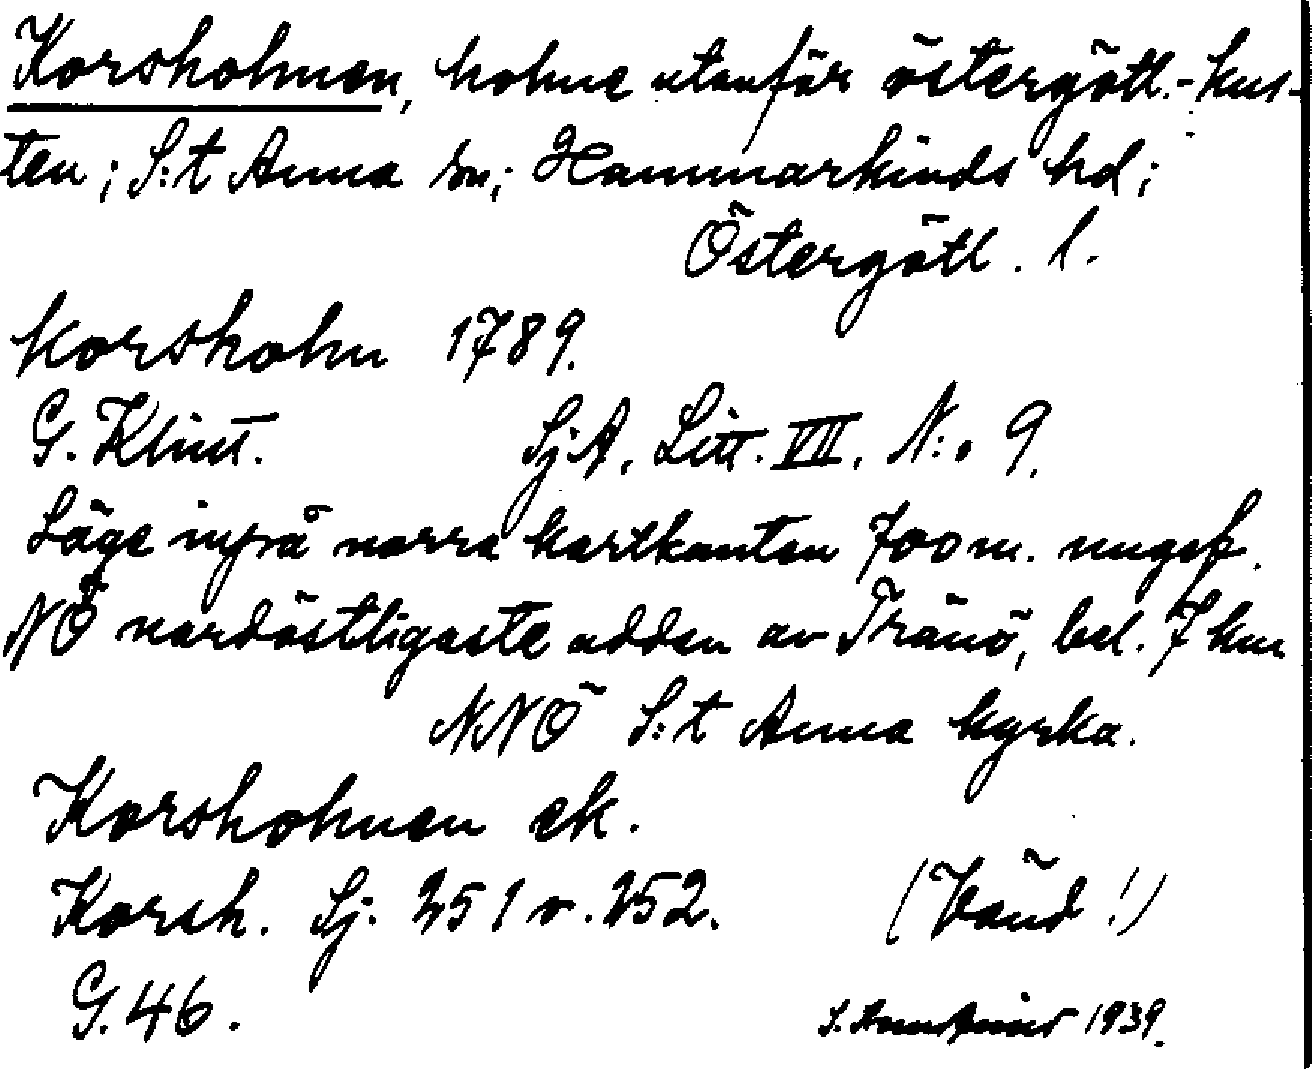 Korsholmen, holme utanför östergötl.-kus-
ten; S:t Anna sn; Hammarkinds hd;
Östergötl. l.
Korsholm 1789.
G. Klint. Sj.A. Litt. VII. N:o 9.
Läge inpå norra kartkanten 700 m. ungef.
NÖ nordöstligaste udden av Tränö, bel. 7 km
NNÖ S:t Anna kyrka.
Korsholmen ek.
Korsh. Sj. 251 o. 252. (Vänd!)
G. 46.
1939.